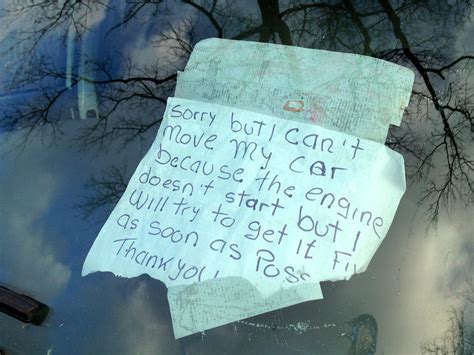 Sorry but I can't
move my car
because the engine
doesn't start but I
will try to get it Fi
as soon as Poss
Thank you!